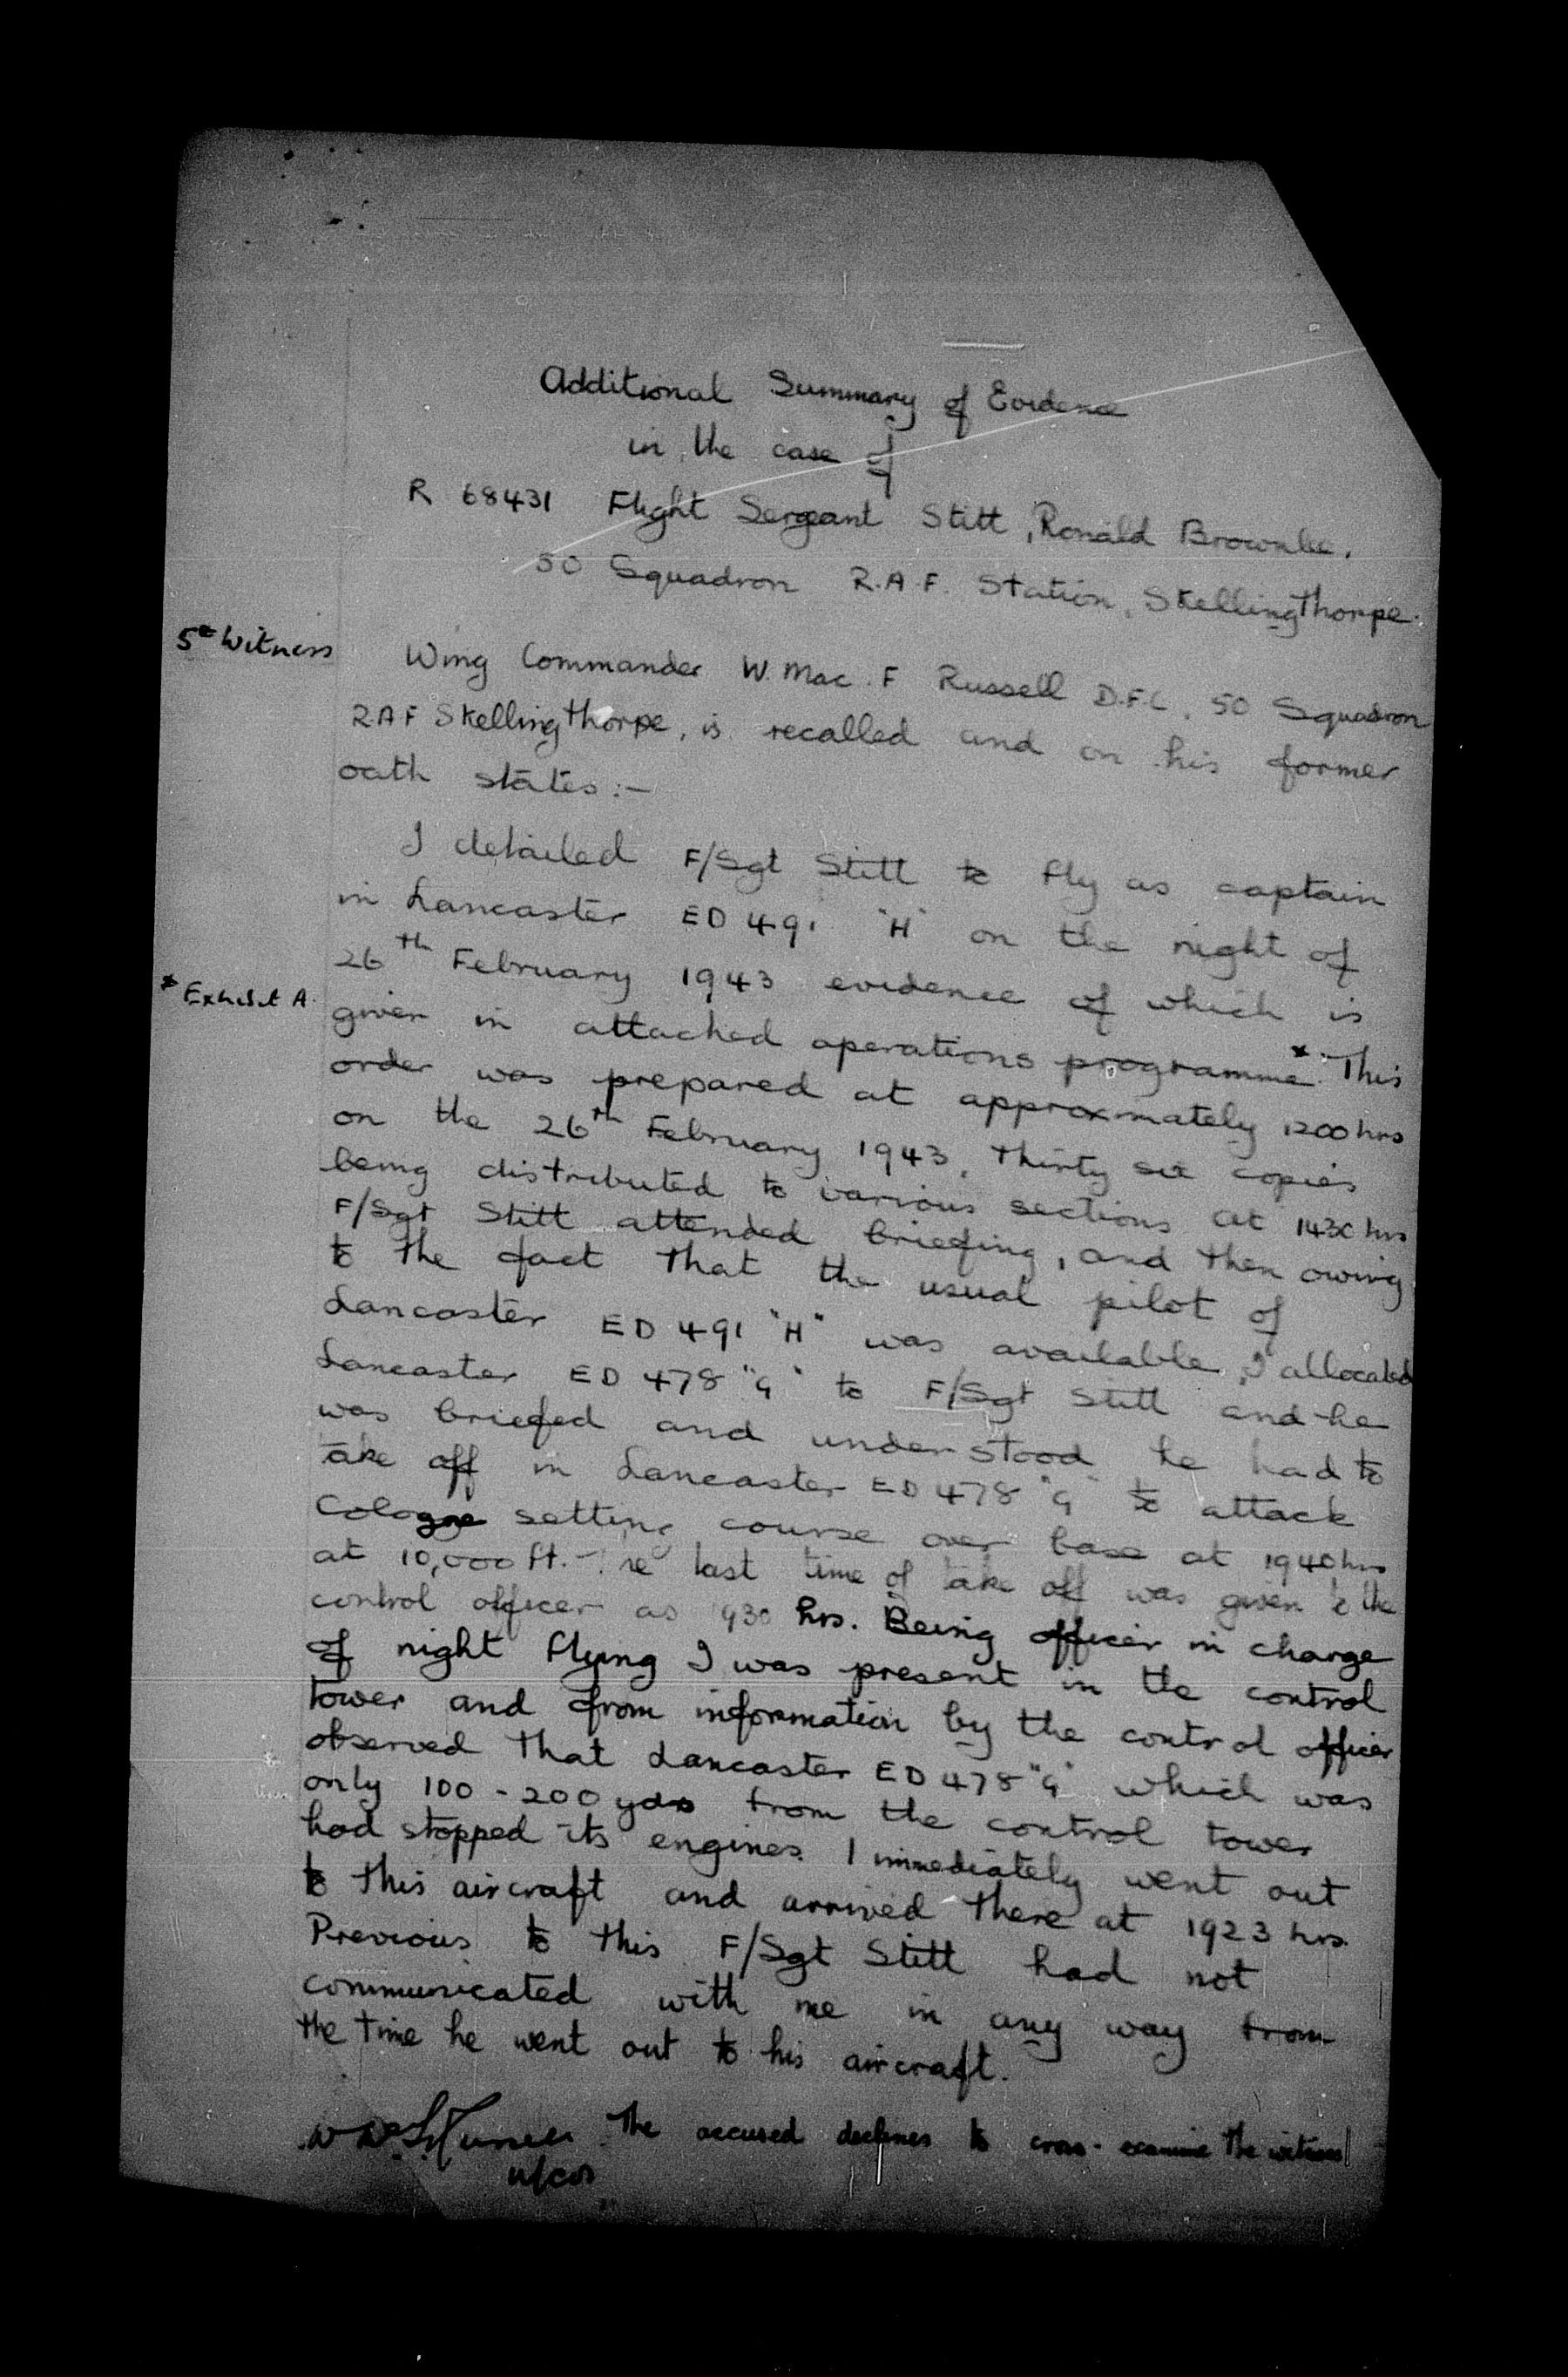 Additional Summary of Evidence
in the case of
R 68431 Flight Sergeant Stitt, Ronald Brownlee.
50 Squadron R.A.F. Station, Skellingthorpe.
5th Witness
Wing Commander W. Mac. F Russell D.F.C. 50 Squadron
RAF Skellingthorpe, is recalled and on his former
oath states:-
I detailed F/Sgt Stitt to fly as captain
in Lancaster ED 491 "H" on the night of
26th February 1943 evidence of which is
* Exhibit A.
given in attached operations programme.* This
order was prepared at approxmately 1200 hrs
on the 26th February 1943, thirty six copies
being distributed to various sections at 1430 hrs
F/Sgt Stitt attended briefing, and then owing
to the fact that the usual pilot of
Lancaster ED 491 "H" was available, I allocated
Lancaster ED 478 "G" to F/Sgt Stitt and he
was briefed and understood he had to
take off in Lancaster ED 478 "G" to attack
Cologne setting course over base at 1940 hrs
at 10,000 ft. The last time of take off was given to the
control officer as 1930 hrs. Being officer in charge
of night flying I was present in the control
tower and from information by the control officer
observed that Lancaster ED 478 "G" which was
only 100 - 200 yds from the control tower
had stopped its engines. I immediately went out
to this aircraft and arrived there at 1923 hrs.
Previous to this F/Sgt Stitt had not
communicated with me in any way from
the time he went out to his aircraft.
The accused declines to cross-examine the witness